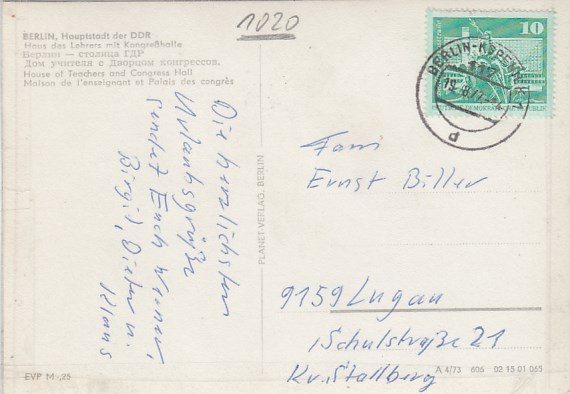 1020
BERLIN, Hauptstadt der DDR
Haus des Lehrers mit Kongreßhalle
Берлин — столица ГДР
Дом учителя с Дворцом конгрессов.
House of Teachers and Congress Hall
Maison de l'enseignant et Palais des congrès
Die herzlichsten
Urlaubsgrüße
sendet Euch
Birgit, Dieter u.
Klaus
PLANET-VERLAG, BERLIN
10
DEUTSCHE DEMOKRATISCHE REPUBLIK
Fam
Ernst Biller
9159 Lugau
Schulstraße 21
Kr. Stollberg
EVP M -,25
A 4/73 606 02 15 01 065